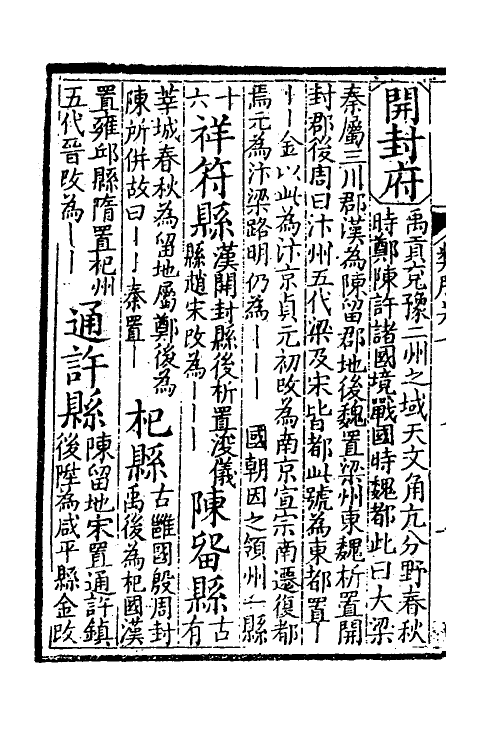 開封府
禹貢兖豫二州之域天文角亢分野春秋
時鄭陳許諸國境戰國時魏都此曰大梁
秦屬三川郡漢為陳留郡地後魏置梁州東魏析置開
封郡後周曰汴州五代梁及宋皆都此號為東都置丨
丨丨金以此為汴京貞元初改為南京宣宗南遷復都
焉元為汴梁路明仍為丨丨丨 國朝因之領州一縣
十
六
祥符縣
漢開封縣後析置浚儀
縣趙宋改為丨丨丨
陳留縣
古
有
莘城春秋為留地屬鄭後為
陳所併故曰丨丨秦置丨
杞縣
古雝國殷周封
禹後為杞國漢
置雍邱縣隋置杞州
五代晉改為丨丨
通許縣
陳留地宋置通許鎮
後陞為咸平縣金改